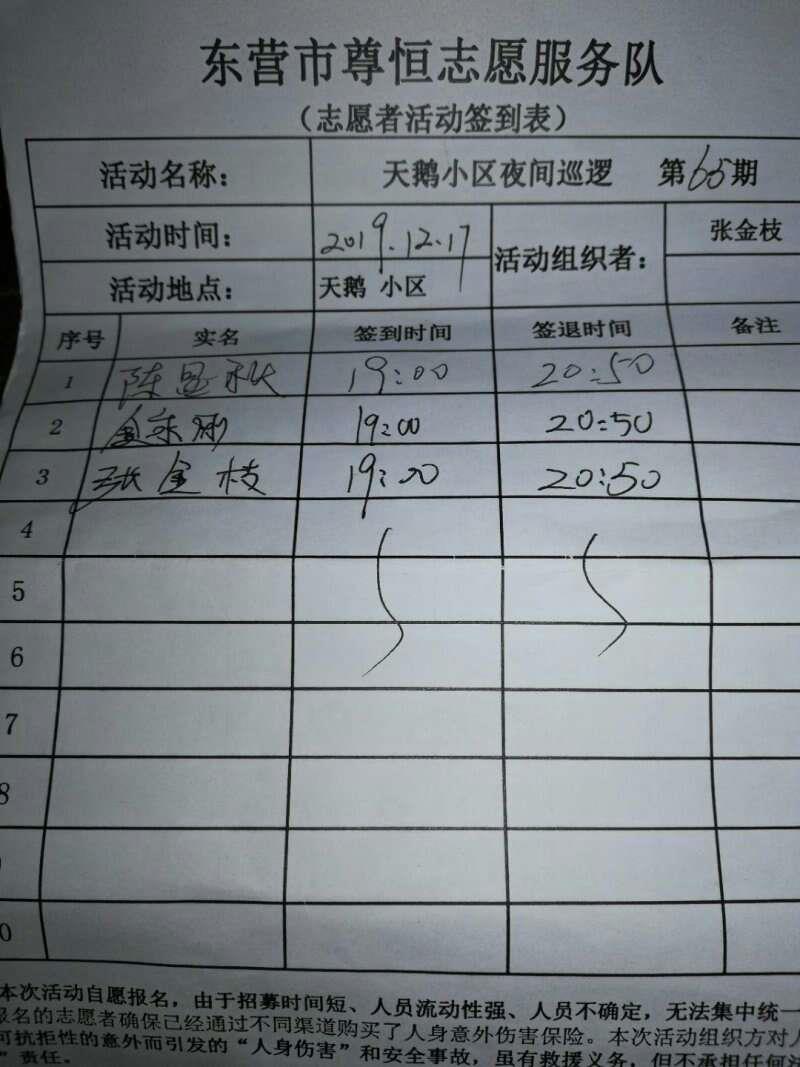 东营市尊恒志愿服务队
（志愿者活动签到表）
活动名称： 天鹅小区夜间巡逻 第65期
活动时间： 2019.12.17 活动组织者： 张金枝
活动地点： 天鹅 小区
序号 实名 签到时间 签退时间 备注
1 陈显秋 19:00 20:50
2 19:00 20:50
3 张金枝 19:00 20:50
4
5
6
7
8
0
本次活动自愿报名，由于招募时间短、人员流动性强、人员不确定，无法集中统一
报名的志愿者确保已经通过不同渠道购买了人身意外伤害保险。本次活动组织方对人
可抗拒性的意外而引发的“人身伤害”和安全事故，虽有救援义务，但不承担任何法
”责任。